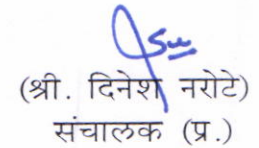 (श्री. दिनेश नरोटे)
संचालक (प्र.)